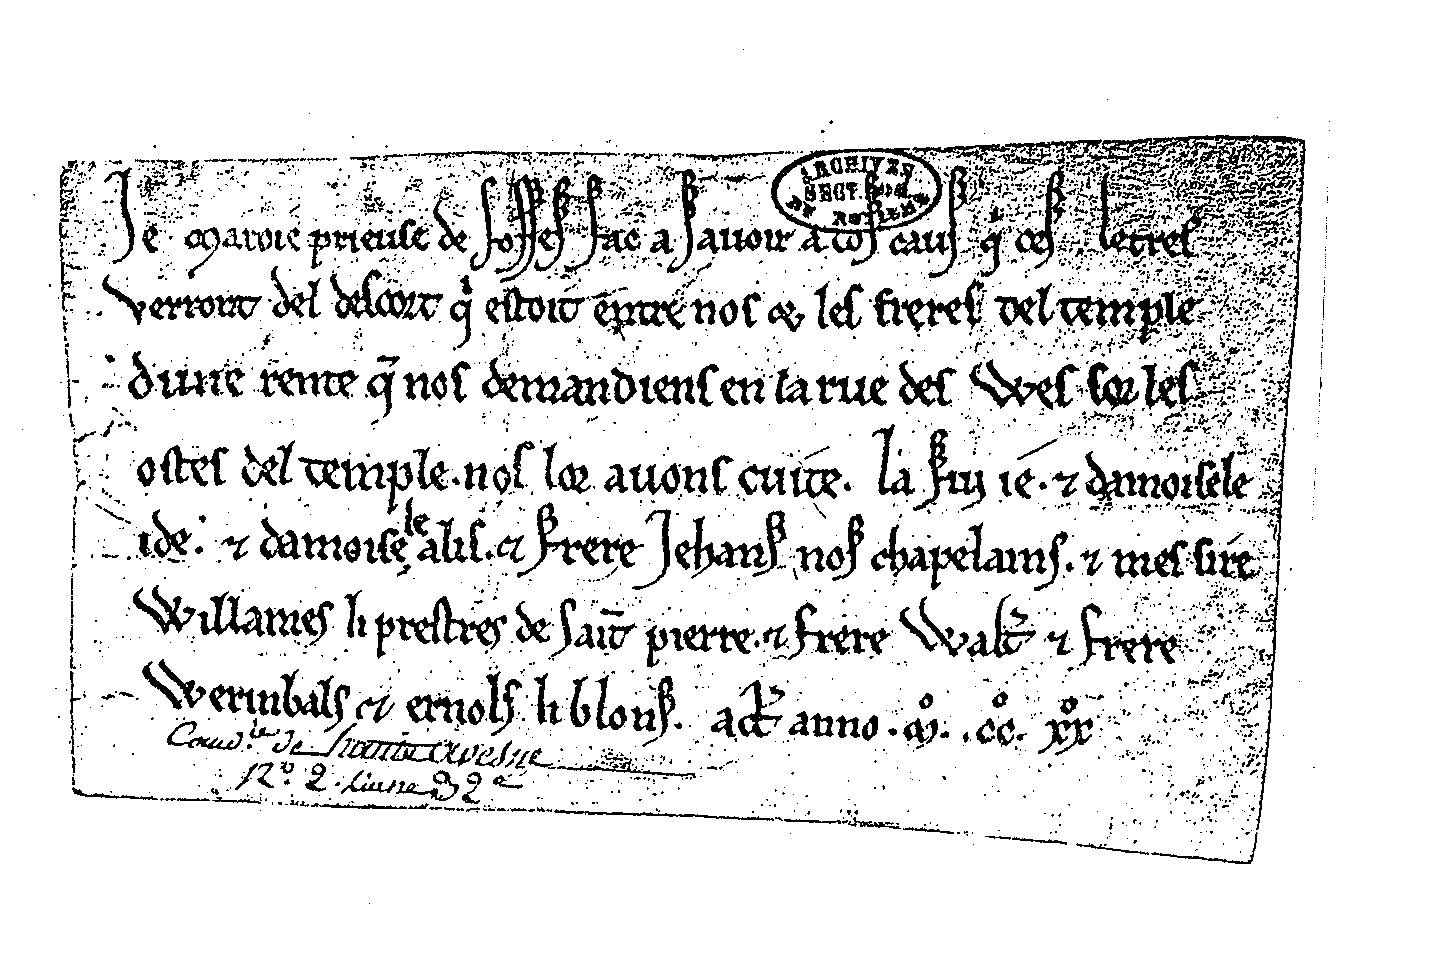 ARCHIVES
SECT.
Je maroie prieuse de soffes fac a sauoir a tos caus q' ces letres
verront del descort q' estoit entre nos & les freres del temple
dune rente q̄ nos demandiens en la rue des Wes sor les
ostes del temple. nos lor auons cuite. la fui ie. ⁊ damoisele
ide. ⁊ damoisele alis. & frere Jehans nos chapelains. ⁊ mes sire
Willames li prestres de Sait̄ pierre. & frere Walt̄ ⁊ frere
Werinbals & ernols li blons. act̄ anno. mo. cco. xxo
Comd.rie de haute Avesne
No. 2. Liasse 32e